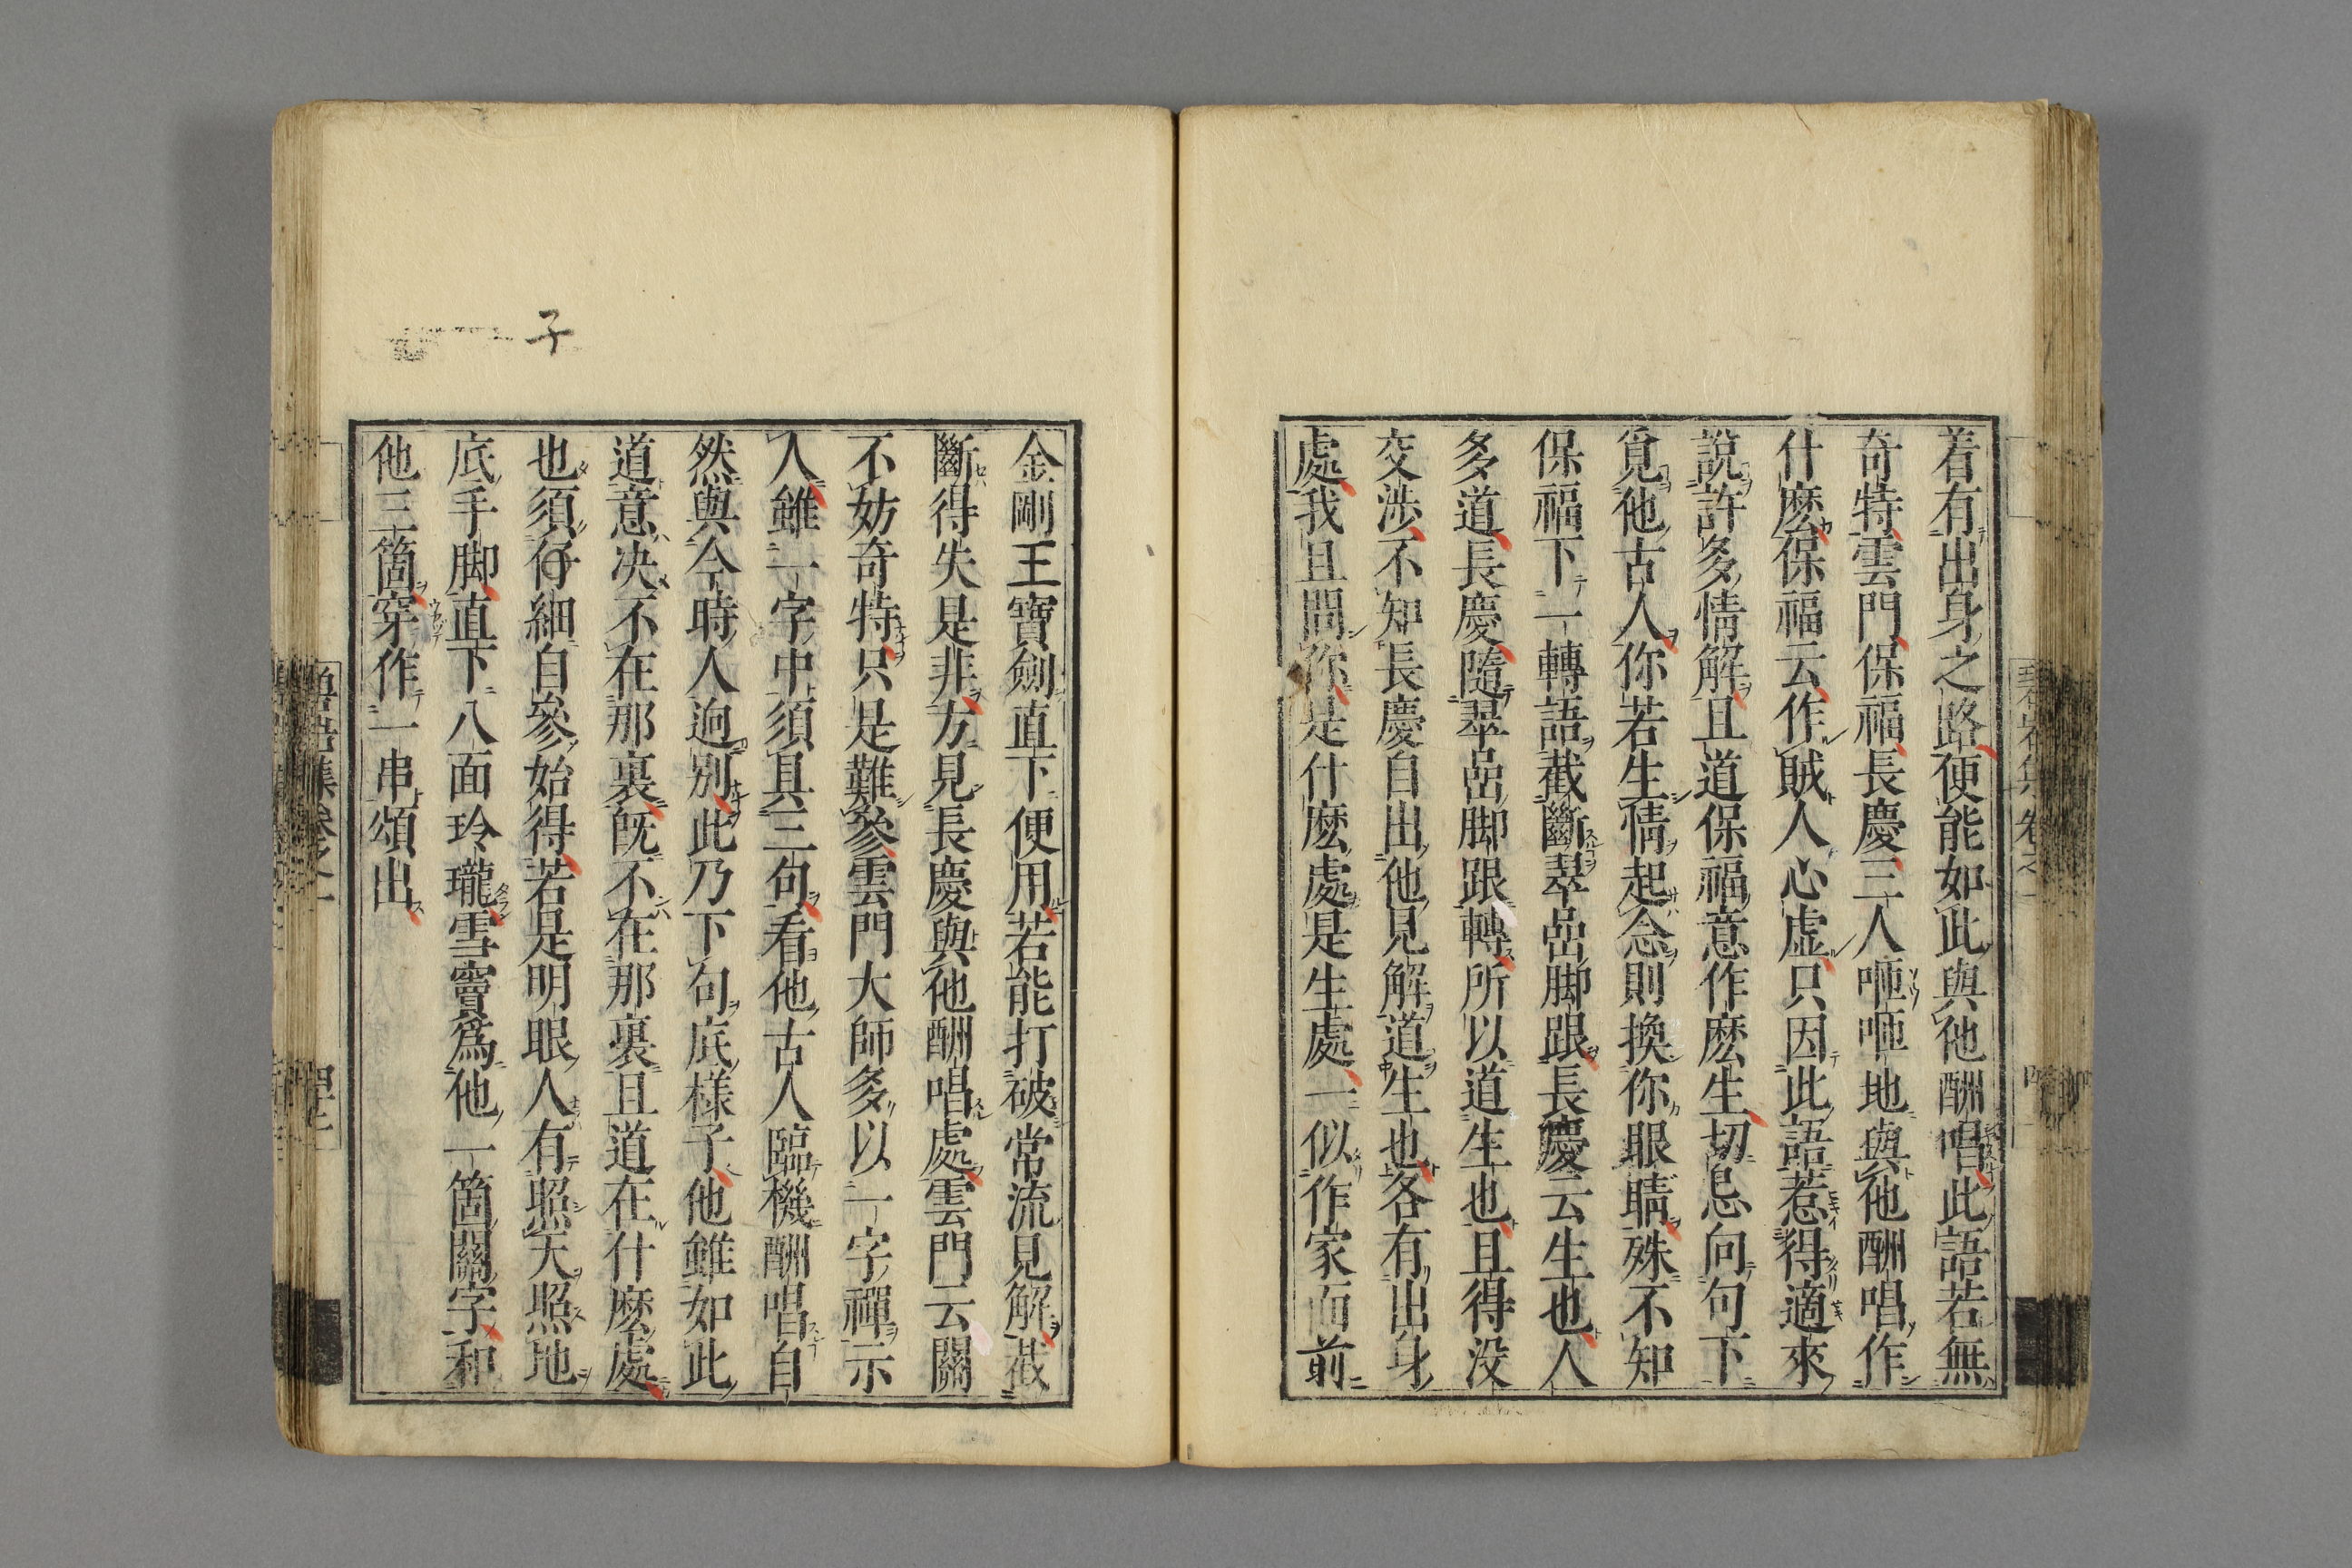 着有出身之路便能如此與他酬唱此語若無
奇特雲門保福長慶三人咂咂地與他酬唱作
什麼保福云作賊人心虛只因此語惹得適來
說許多情解且道保福意作麼生切忌向句下
覓他古人你若生情起念則換你眼睛殊不知
保福下一轉語截斷翠嵒脚跟長慶云生也人
多道長慶隨翠嵒脚跟轉所以道生也且得没
交涉不知長慶自出他見解道生也各有出身
處我且問你是什麼處是生處一似作家面前
金剛王寶劍直下便用若能打破常流見解截
斷得失是非方見長慶與他酬唱處雲門云關
不妨奇特只是難參雲門大師多以一字禪示
人雖一字中須具三句看他古人臨機酬唱自
然與今時人迥別此乃下句底樣子他雖如此
道意決不在那裏既不在那裏且道在什麼處
也須仔細自參始得若是明眼人有照天照地
底手脚直下八面玲瓏雪竇爲他一箇關字和
他三箇穿作一串頌出
子